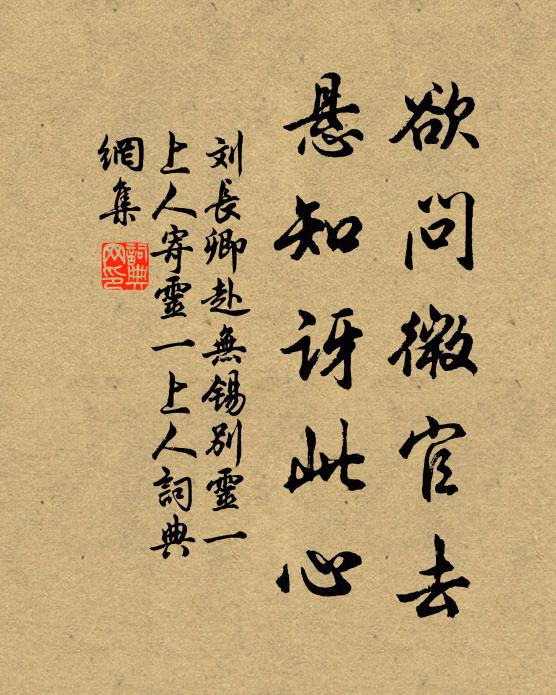 欲问微官去
悬知讶此心
刘長卿赴無锡别靈一
上人寄靈一上人詞典
網集
詞典
网印